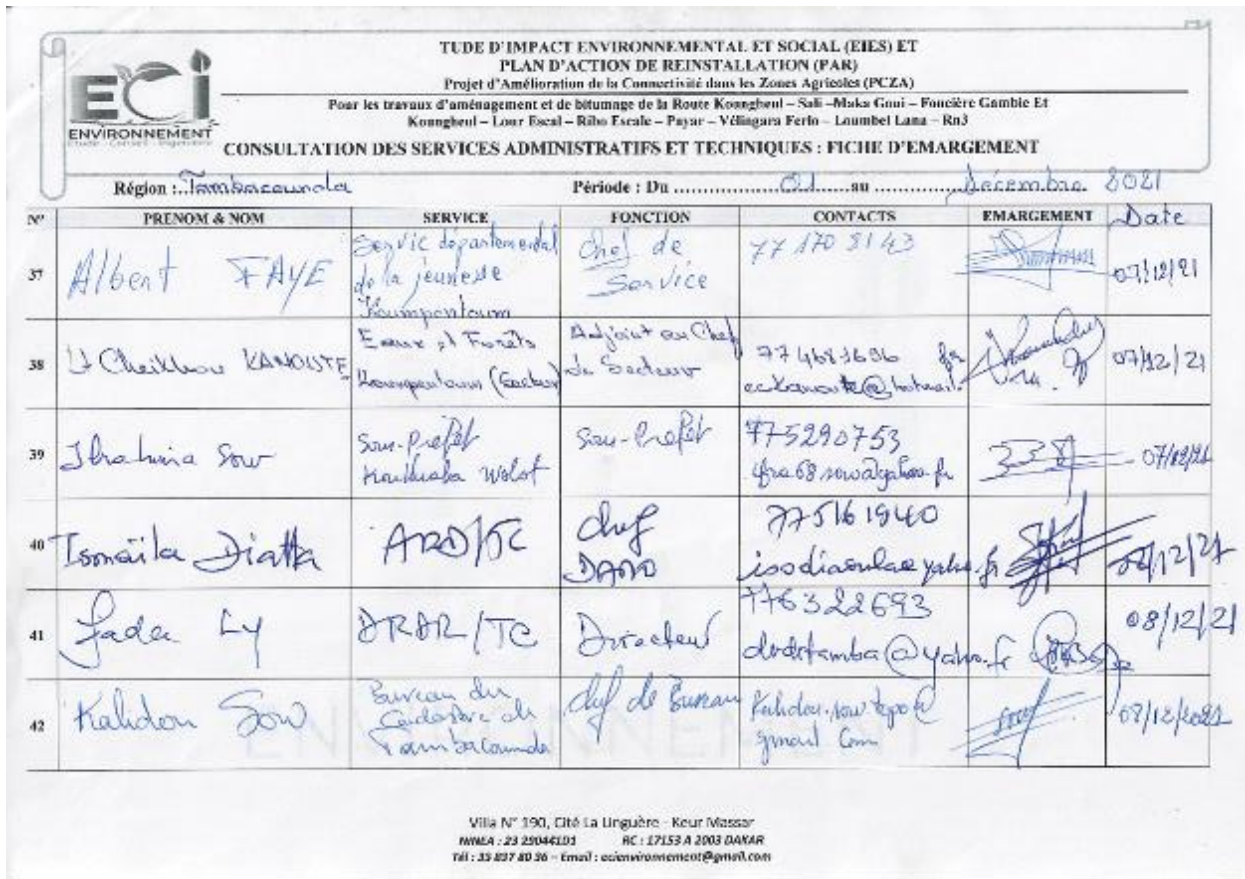 ECi
ENVIRONNEMENT
Etude - Conseil - Ingénierie
TUDE D'IMPACT ENVIRONNEMENTAL ET SOCIAL (EIES) ET
PLAN D'ACTION DE REINSTALLATION (PAR)
Projet d'Amélioration de la Connectivité dans les Zones Agricoles (PCZA)
Pour les travaux d'aménagement et de bitumage de la Route Koungheul – Sali –Maka Goui – Foncière Gambie Et
Koungheul – Lour Escal – Ribo Escale – Payar – Vélingara Ferlo – Loumbel Lana – Rn3
CONSULTATION DES SERVICES ADMINISTRATIFS ET TECHNIQUES : FICHE D'EMARGEMENT
Région : Tambacounda Période : Du 01 au décembre 2021
N° PRENOM & NOM SERVICE FONCTION CONTACTS EMARGEMENT Date
37 Albert FAYE Servic départemental de la jeunesse Koumpentoum Chef de Service 77 170 51 43 07/12/21
38 Lt Cheikhou KANOUTE Eaux et Forêts Koumpentoum (Secteur) Adjoint au Chef de Secteur 07/12/21
39 Ibrahima Sow Sous-Préfet Sous-Préfet 775290753 07/12/21
40 Ismaïla Diatta ARD/TC Chef 775161940
41 Ly DRDR/TC Directeur 776322693 drdrtamba@yahoo.fr 08/12/21
42 Kalidou Sow Bureau du Cadastre de Tambacounda chef de Bureau
ENVIRONNEMENT
Villa N° 190, Cité La Linguère - Keur Massar
NINEA : 23 29044101 RC : 17153 A 2003 DAKAR
Tél : 33 837 80 36 – Email : ecienvironnement@gmail.com